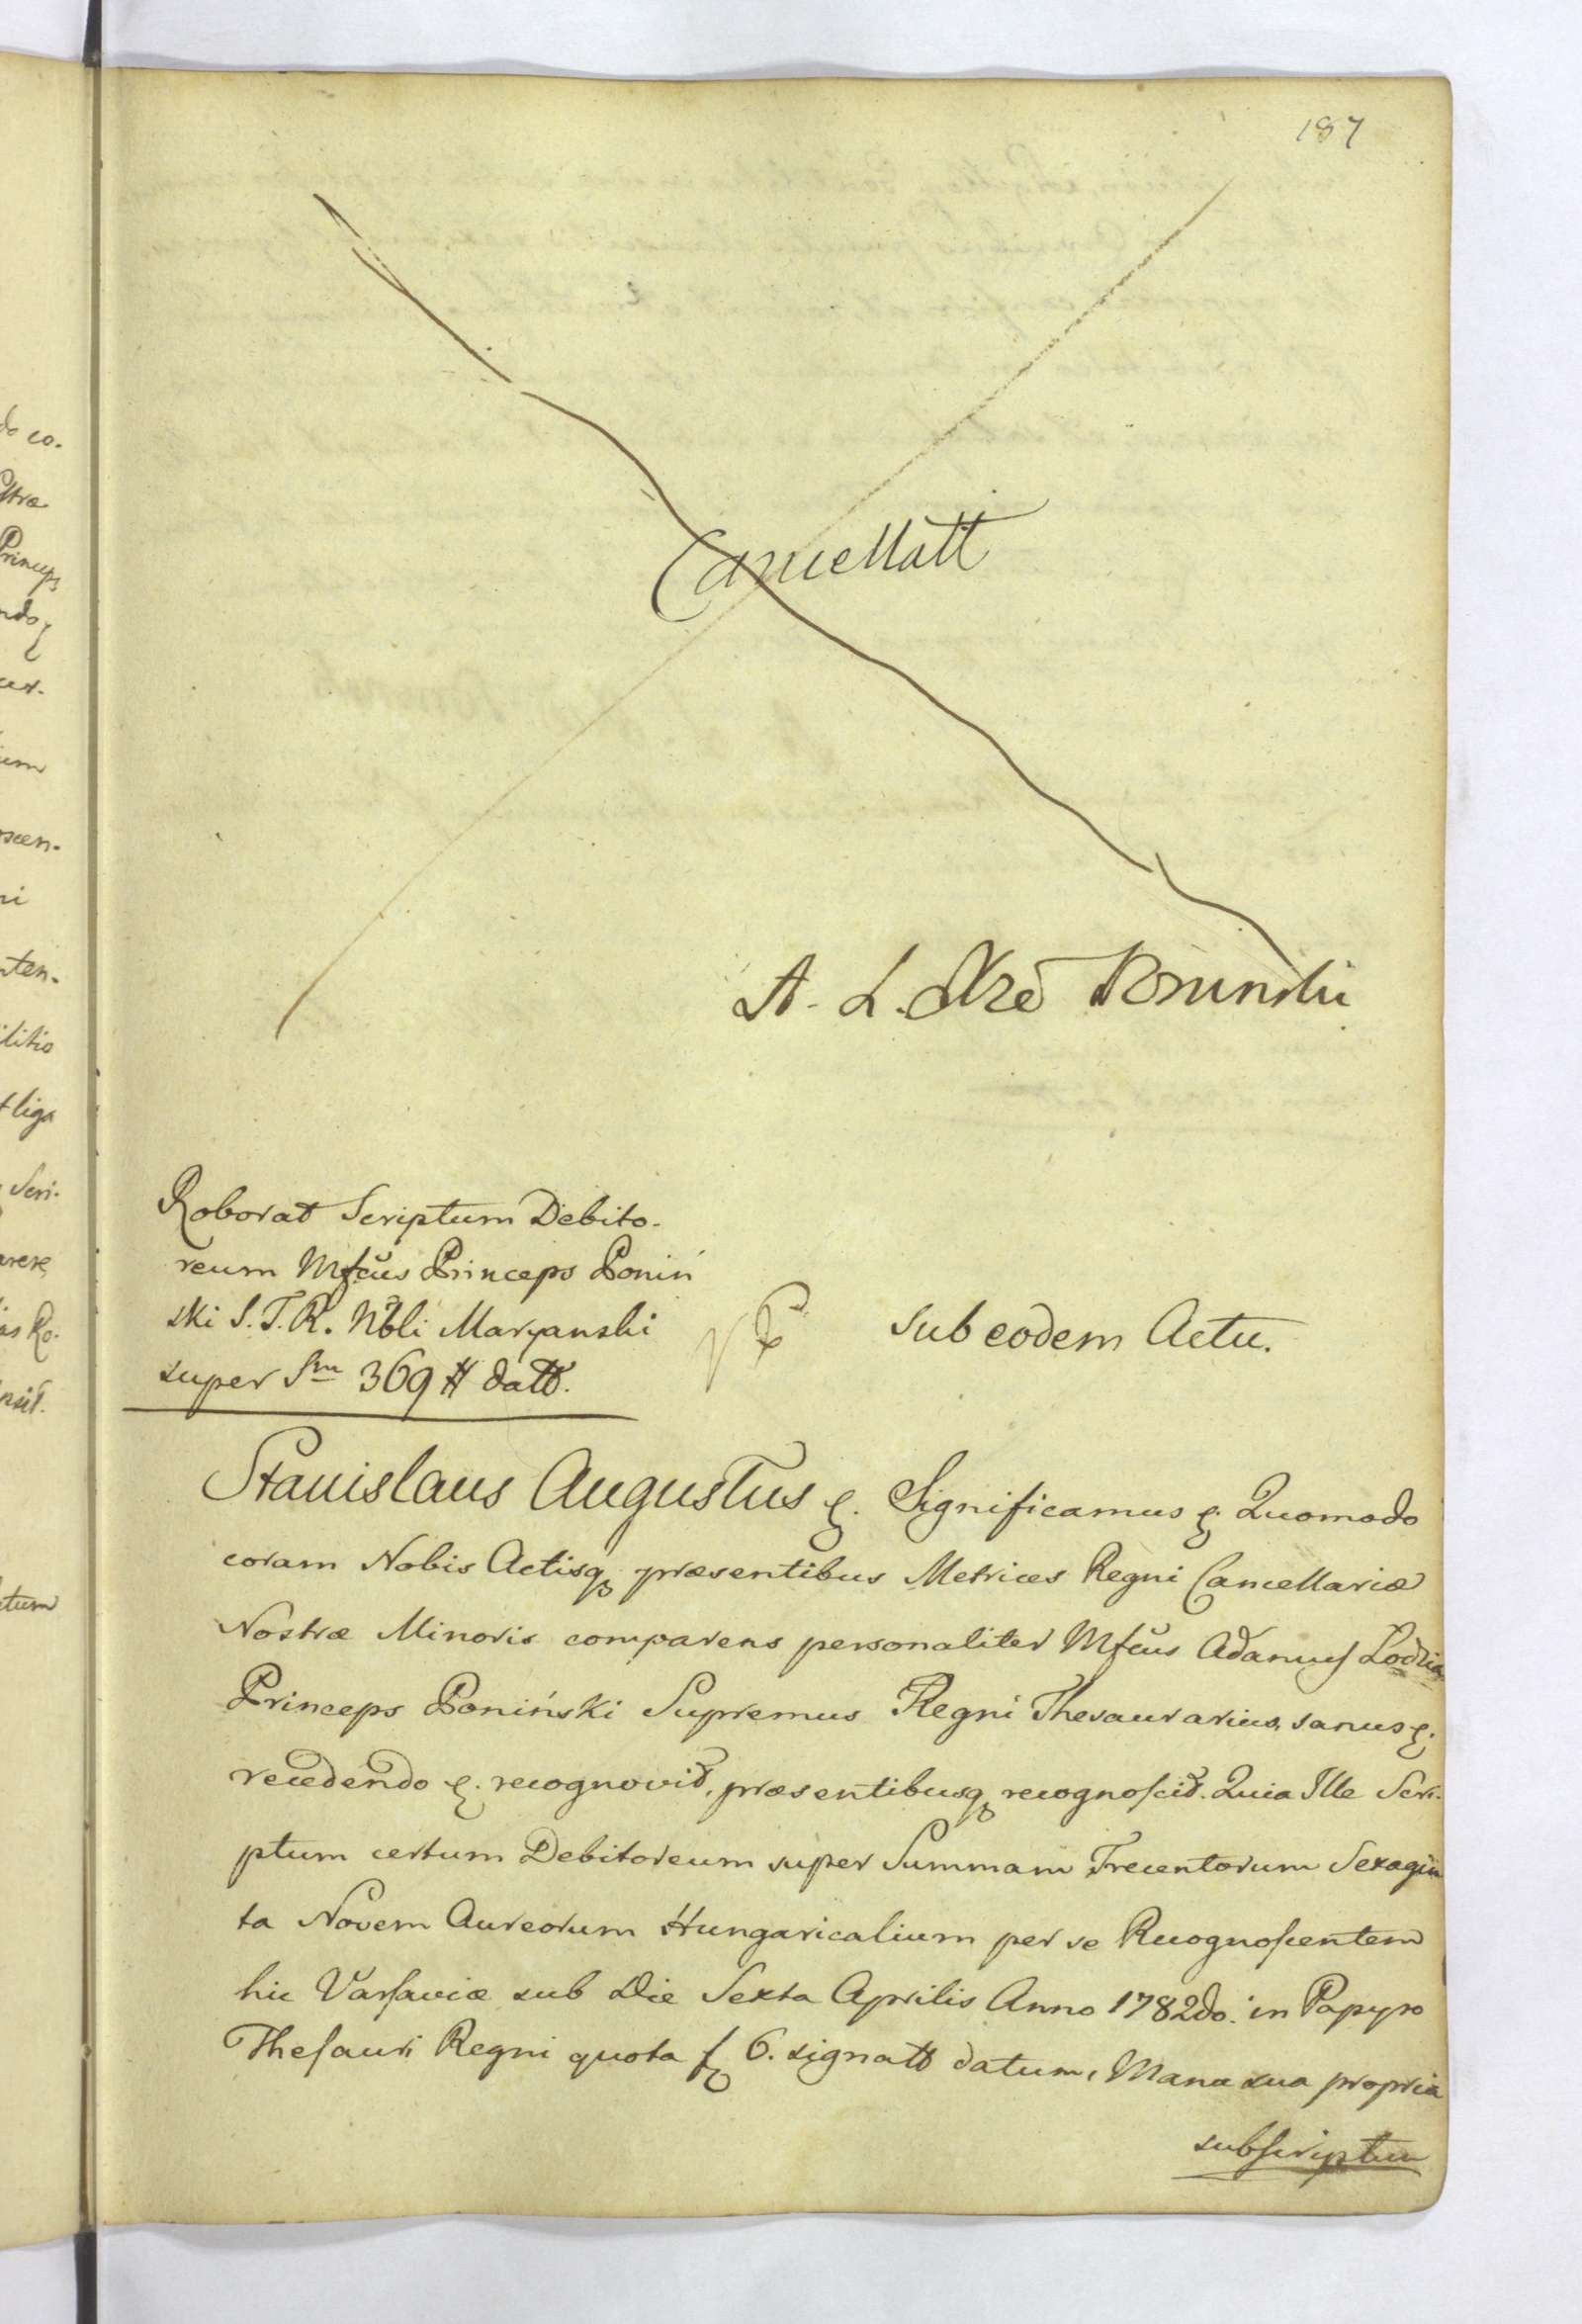 187
Cancellatt
A. L.
Roborat Scriptum Debito-
reum Mfcus Princeps Poniń
ski S. T. R. Nbli Maryanski
super Sm 369 # datt.
Sub eodem Actu.
Stanislaus Augustus &. Significamus &. Quomodo
coram Nobis Actisq præsentibus Metrices Regni Cancellariæ
Nostræ Minoris comparens personaliter Mfcus Adamus Lodzia
Princeps Poniński Supremus Regni Thesaurarius, sanus &.
recedendo &. recognovit, præsentibusq recognoscit. Quia Ille Scri-
ptum certum Debitoreum super Summam Trecentorum Sexagin
ta Novem Aureorum Hungaricalium per se Recognoscentem
hic Varsaviæ sub Die Sexta Aprilis Anno 1782do. in Papyro
Thesauri Regni quota f 6. signatt datum, Manu sua propria
subscriptum
do co-
stræ
Princeps
scen-
ni
nten-
Scri-
Re-